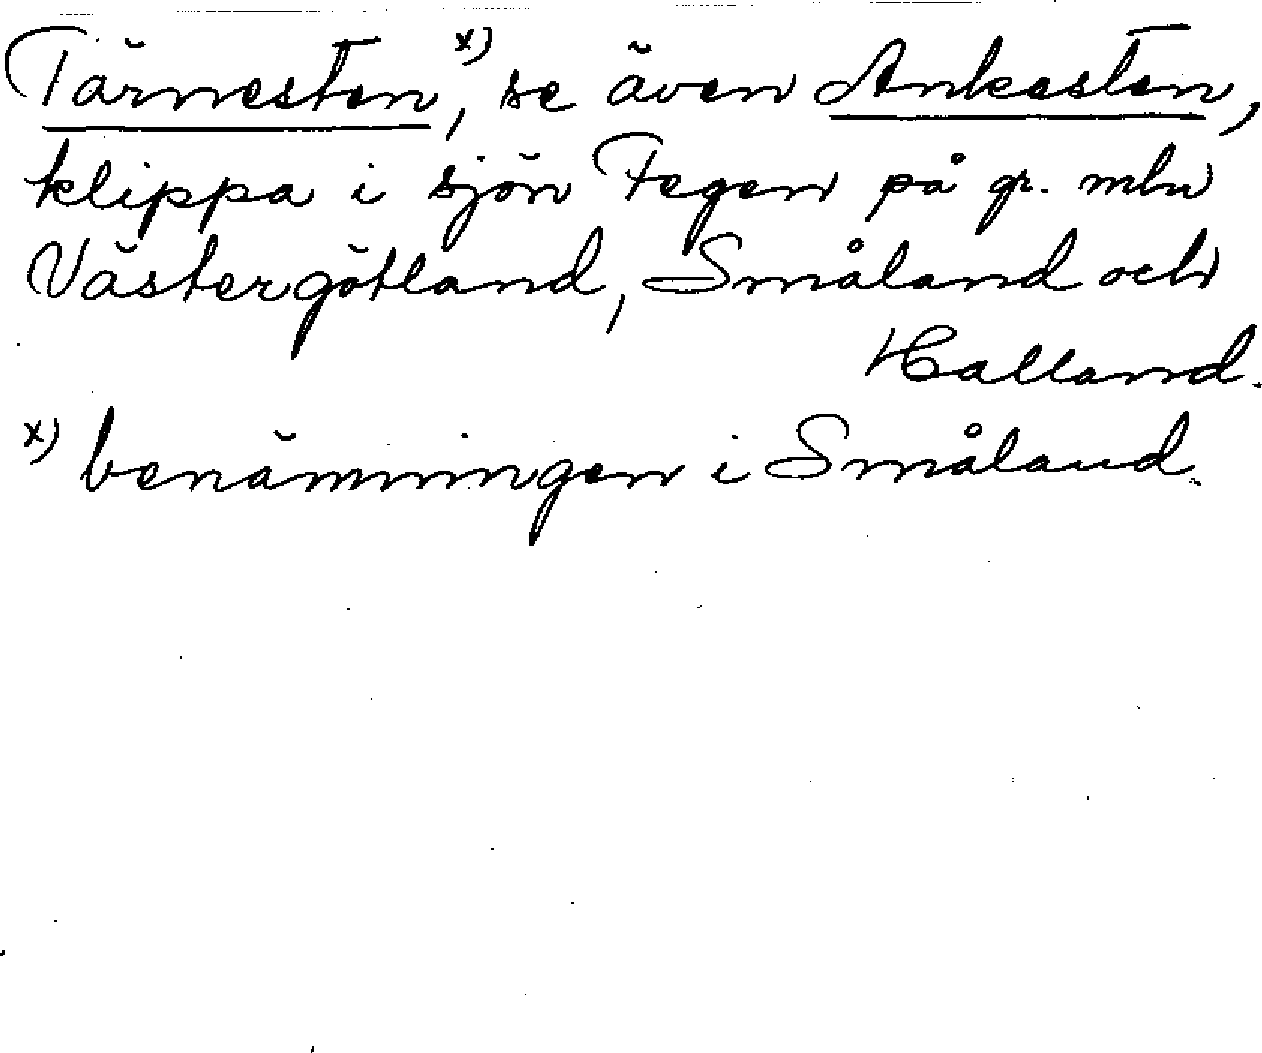 Tärnesten, x) se även Ankesten,
klippa i sjön Fegen på gr. mln
Västergötland, Småland och
Halland.
x) benämningen i Småland.